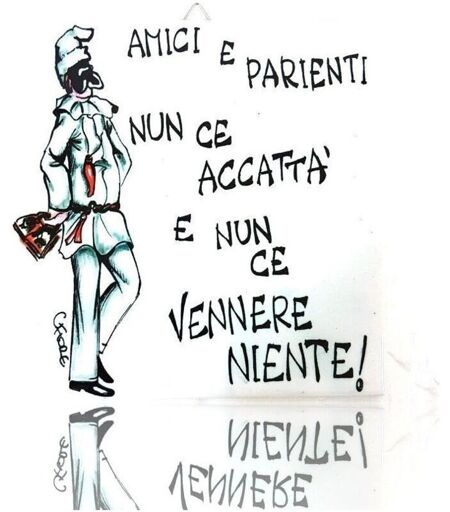 AMICI E PARIENTI
NUN CE
ACCATTÀ
E NUN
CE
VENNERE
NIENTE!